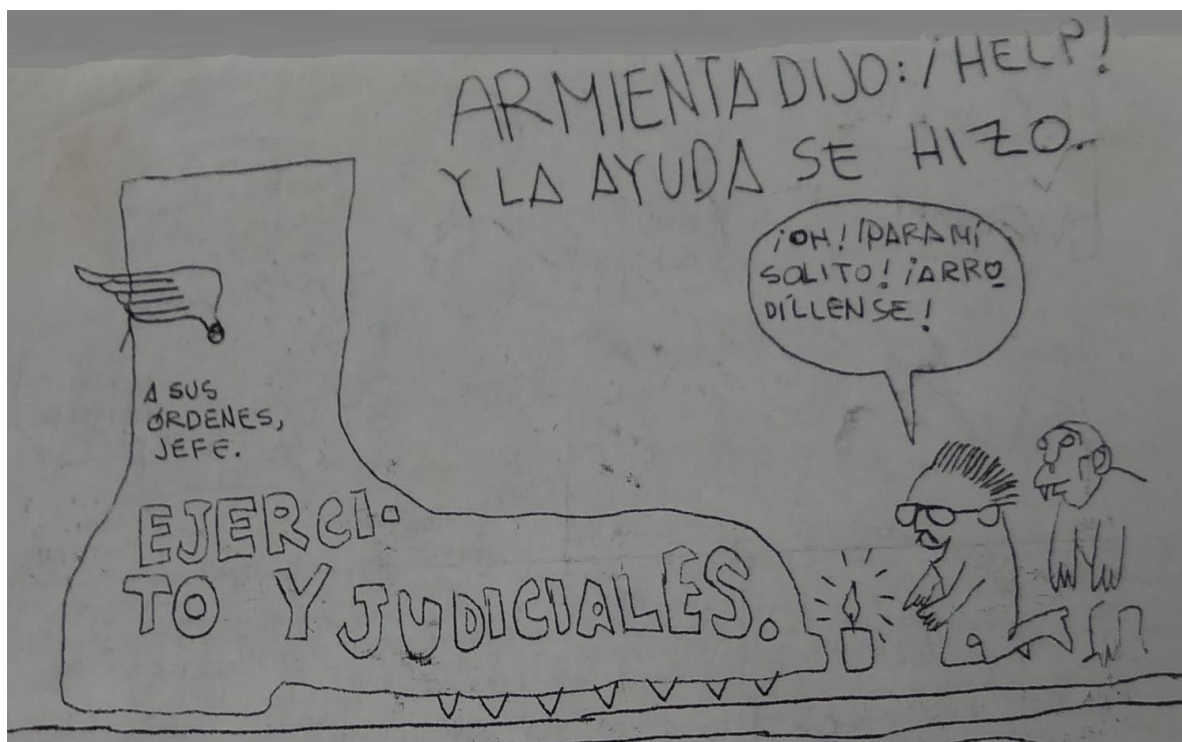 ARMIENTA DIJO: ¡HELP!
Y LA AYUDA SE HIZO.
¡OH! ¡PARA MÍ
SOLITO! ¡ARRO
DÍLLENSE!
A SUS
ÓRDENES,
JEFE.
EJERCI-
TO Y JUDICIALES.